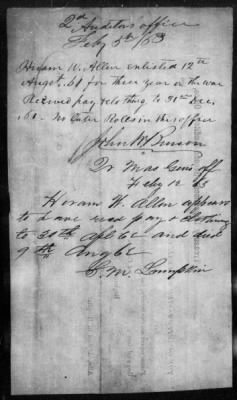 2d Auditors office
Feby 5th /63
Hiram W. Allen enlisted 12th
Augt. 61 for three years or the war
Received pay & clothing to 31st Dec.
61. No later Rolls in this office
John M Benson
Qr Mas Genls off
Feby 12 63
Horam W. Allen appears
to have recd pay & clothing
to 30th Apl 62 and died
9th Aug 62
S. M. Lumpkin